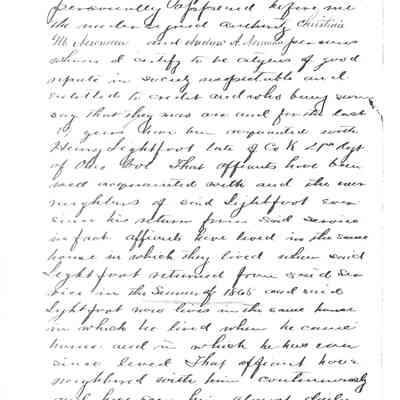 personally appeared before me
the undersigned authority Christina
M. Newman and Andrew A. Newman persons
whom I certify to be citizens of good
repute in society respectable and
entitled to credit and who being sworn
say that they was are and for the last
years have been acquainted with
Henry Lightfoot late of Co K 21st Regt
of Ohio Vol That affiants have been
well acquainted with and the near
neighbors of said Lightfoot ever
since his return from said service
in fact affiants have lived in the same
house in which they lived when said
Lightfoot returned from said ser
vice in the Summer of 1865 and said
Lightfoot now lives in the same house
in which he lived when he came
home and in which he has ever
since lived That affiant have
neighbored with him continuously
and have seen him almost daily